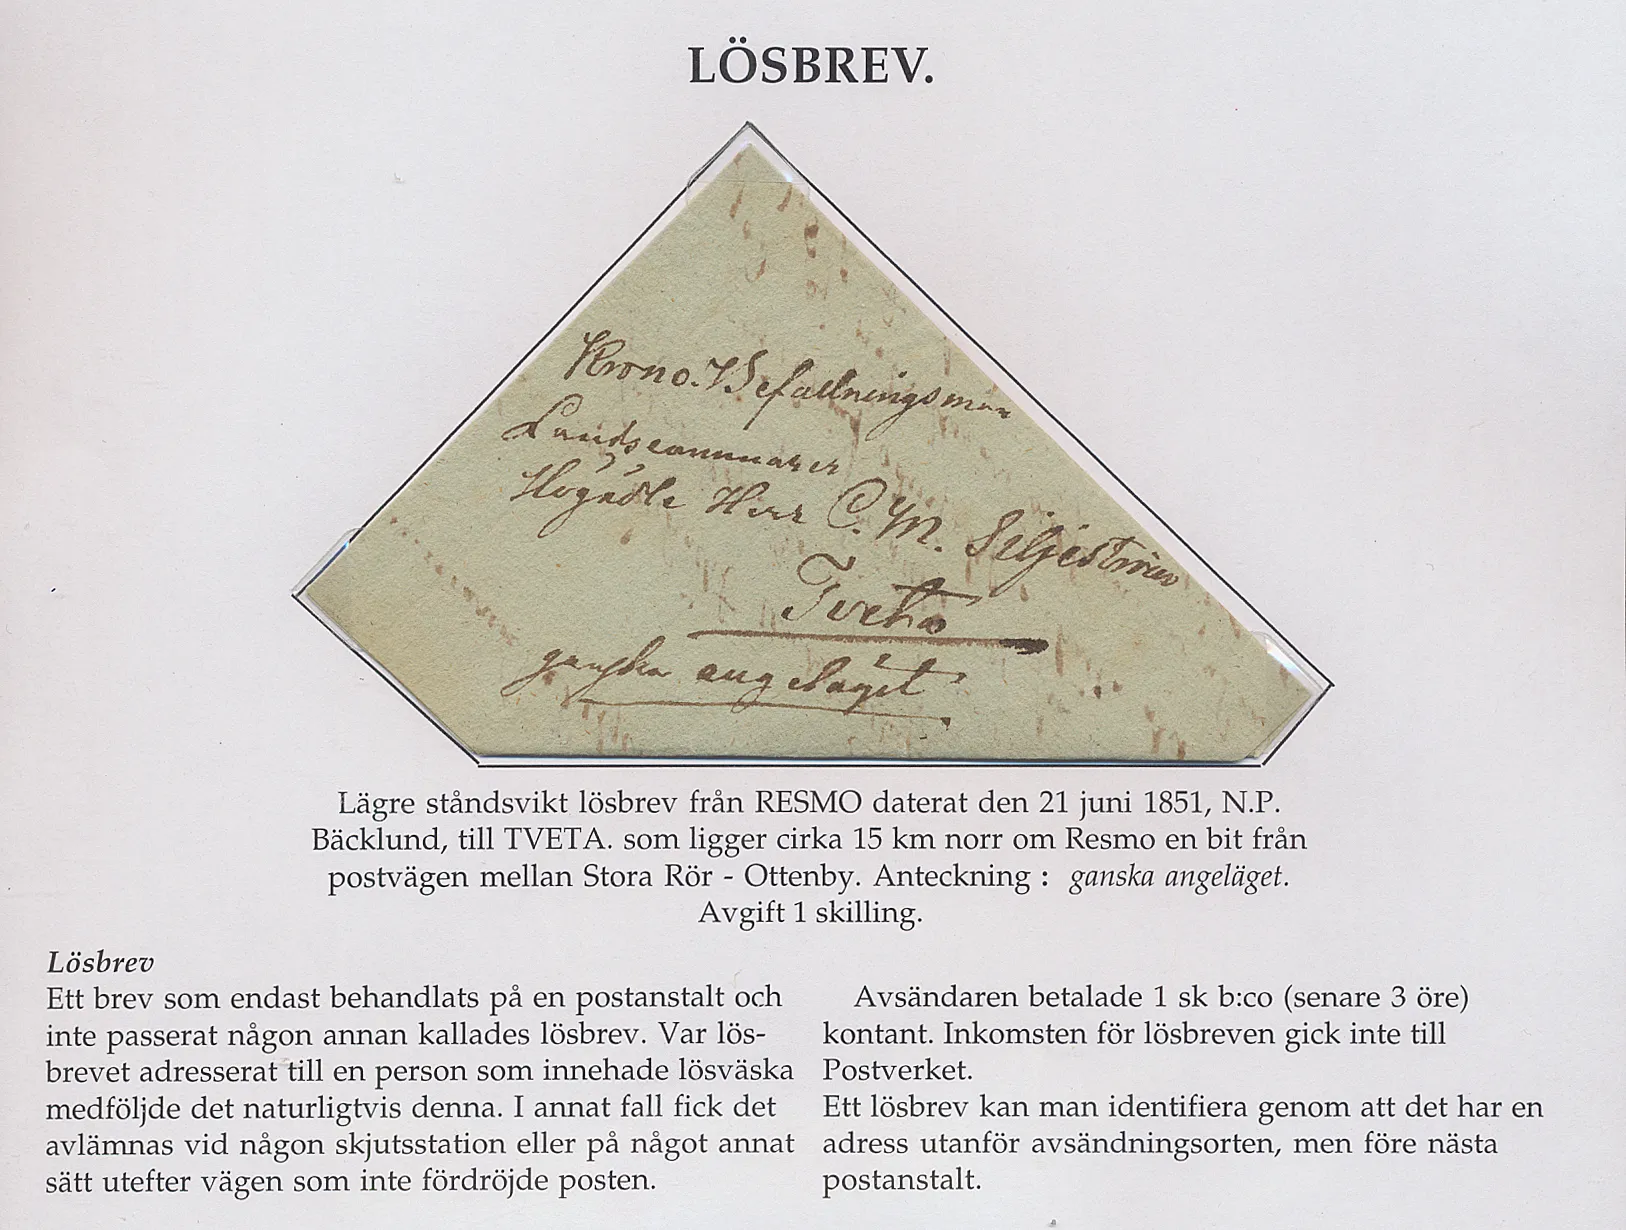 LÖSBREV.
Krono-Befallningsman
Landscammarer
Högädle Herr C. M. Siljeström
Tveta
ganska angeläget
Lägre ståndsvikt lösbrev från RESMO daterat den 21 juni 1851, N.P.
Bäcklund, till TVETA. som ligger cirka 15 km norr om Resmo en bit från
postvägen mellan Stora Rör - Ottenby. Anteckning : ganska angeläget.
Avgift 1 skilling.
Lösbrev
Ett brev som endast behandlats på en postanstalt och
inte passerat någon annan kallades lösbrev. Var lös-
brevet adresserat till en person som innehade lösväska
medföljde det naturligtvis denna. I annat fall fick det
avlämnas vid någon skjutsstation eller på något annat
sätt utefter vägen som inte fördröjde posten.
Avsändaren betalade 1 sk b:co (senare 3 öre)
kontant. Inkomsten för lösbreven gick inte till
Postverket.
Ett lösbrev kan man identifiera genom att det har en
adress utanför avsändningsorten, men före nästa
postanstalt.